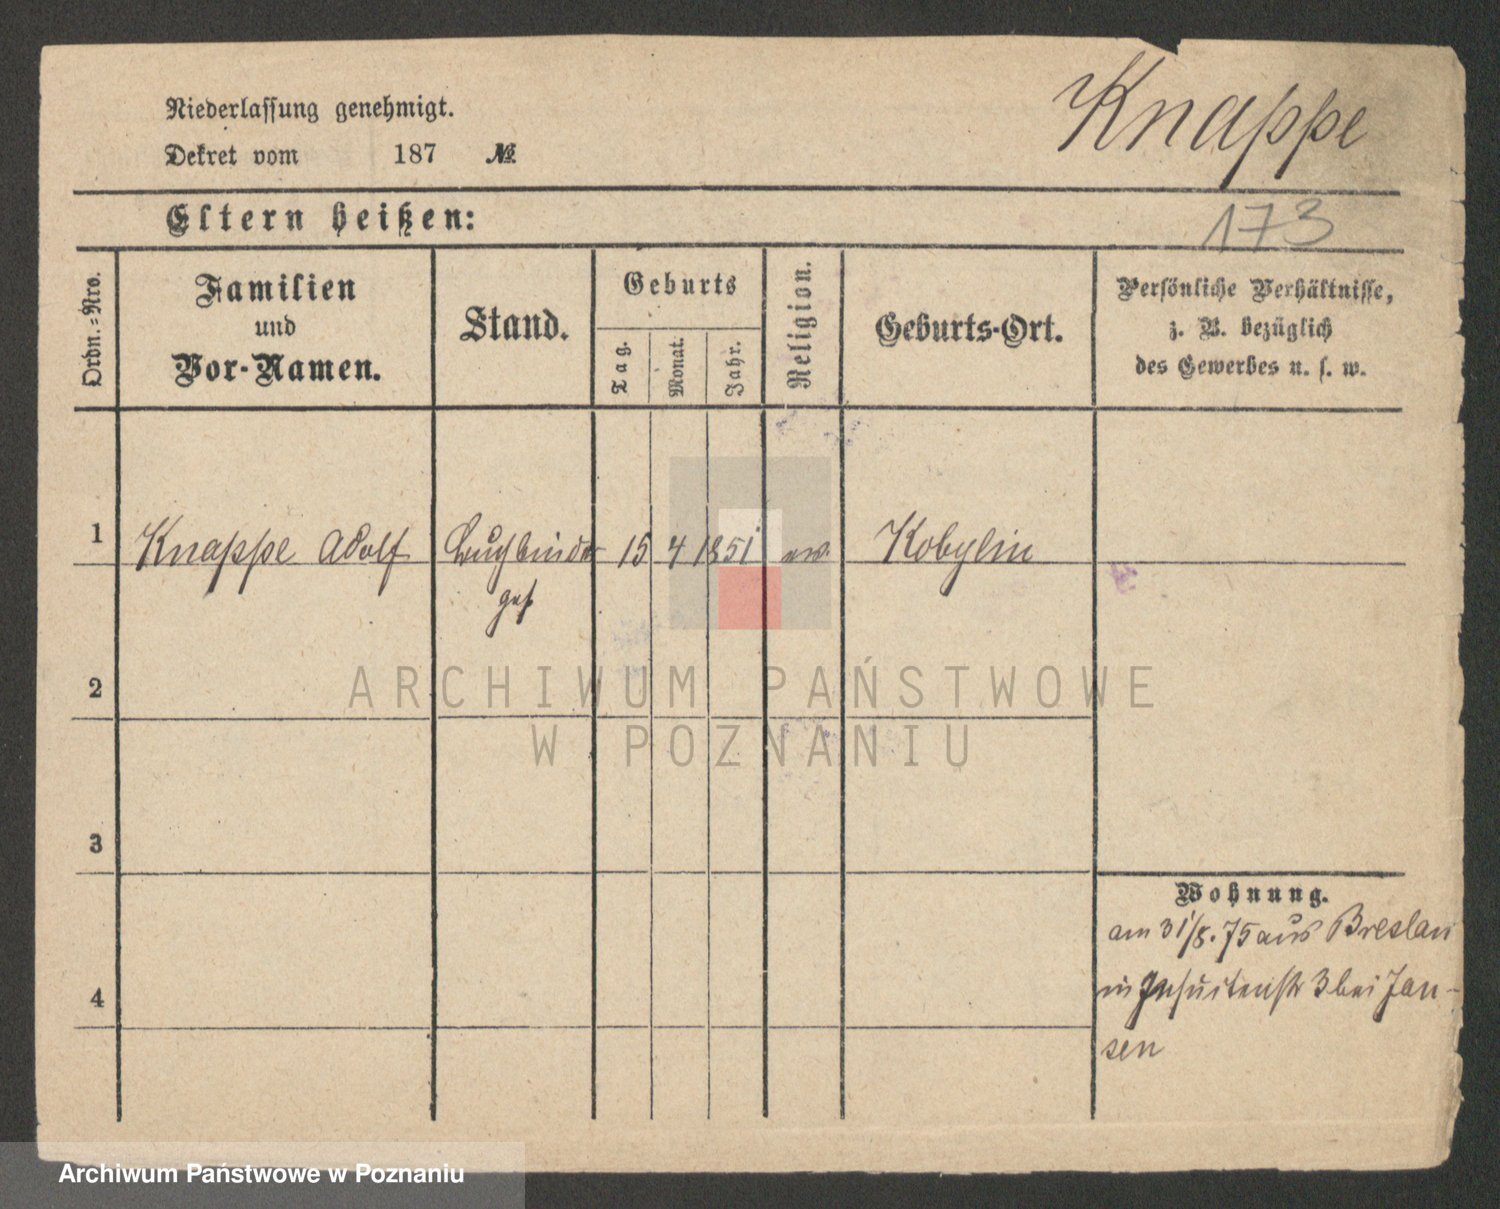 Knappe
Niederlassung genehmigt.
Dekret vom 187 №
173
Eltern heißen:
Ordn.-Nro.
Familien
und
Vor-Namen.
Stand.
Geburts
Tag.
Monat.
Jahr.
Religion.
Geburts-Ort.
Persönliche Verhältnisse,
z. B. bezüglich
des Gewerbes u. s. w.
1 Knappe Adolf Buchbinder 15 4 1851 ev. Kobylin
ges
2
3
4
Wohnung.
am 31/8.75 aus Breslau
in Jesuitenstr 3 bei Jan-
sen
ARCHIWUM PAŃSTWOWE
W POZNANIU
Archiwum Państwowe w Poznaniu